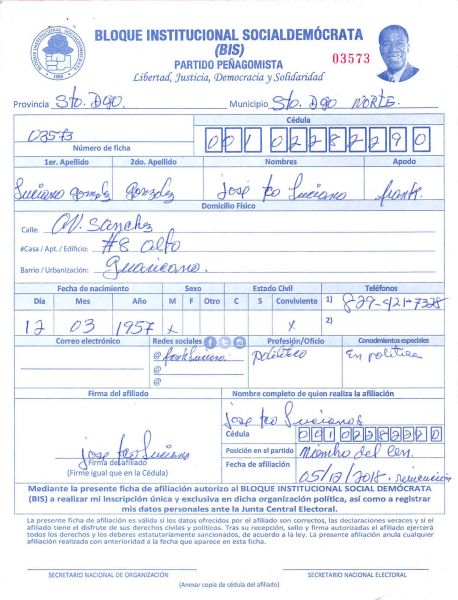 BLOQUE INSTITUCIONAL SOCIALDEMÓCRATA
(BIS)
PARTIDO PEÑAGOMISTA
03573
Libertad, Justicia, Democracia y Solidaridad
Provincia Sto. Dgo. Municipio Sto. Dgo NORTE.
Cédula
03573
Número de ficha
1er. Apellido 2do. Apellido Nombres Apodo
Luciano Gonzalez Jose Fco Luciano
Domicilio Físico
Calle: AV. Sanchez
#Casa / Apt. / Edificio: #8 alto
Barrio / Urbanización: Guaricano.
Fecha de nacimiento Sexo Estado Civil Teléfonos
Día Mes Año M F Otro C S Conviviente 1) 829-421-7328
12 03 1957 x x 2)
Correo electrónico Redes sociales Profesión/Oficio Conodmientos especiales
@ Politico En politica
@
@
Firma del afiliado Nombre completo de quien realiza la afiliación
Jose Fco Luciano
Cédula
Jose Fco Luciano
Firma del afiliado
(Firme igual que en la Cédula)
Posición en el partido Miembro del Cen.
Fecha de afiliación 05/12/2018.
Mediante la presente ficha de afiliación autorizo al BLOQUE INSTITUCIONAL SOCIAL DEMÓCRATA
(BIS) a realizar mi inscripción única y exclusiva en dicha organización política, así como a registrar
mis datos personales ante la Junta Central Electoral.
La presente ficha de afiliación es válida si los datos ofrecidos por el afiliado son correctos, las declaraciones veraces y si el
afiliado tiene el disfrute de sus derechos civiles y políticos. Tras su recepción, sello y firma autorizadas el afiliado ejercerá
todos los derechos y los deberes estatutariamente sancionados, de acuerdo a la ley. La presente afiliación anula cualquier
afiliación realizada con anterioridad a la fecha que aparece en esta ficha.
SECRETARIO NACIONAL DE ORGANIZACIÓN SECRETARIO NACIONAL ELECTORAL
(Anexar copia de cédula del afiliado)